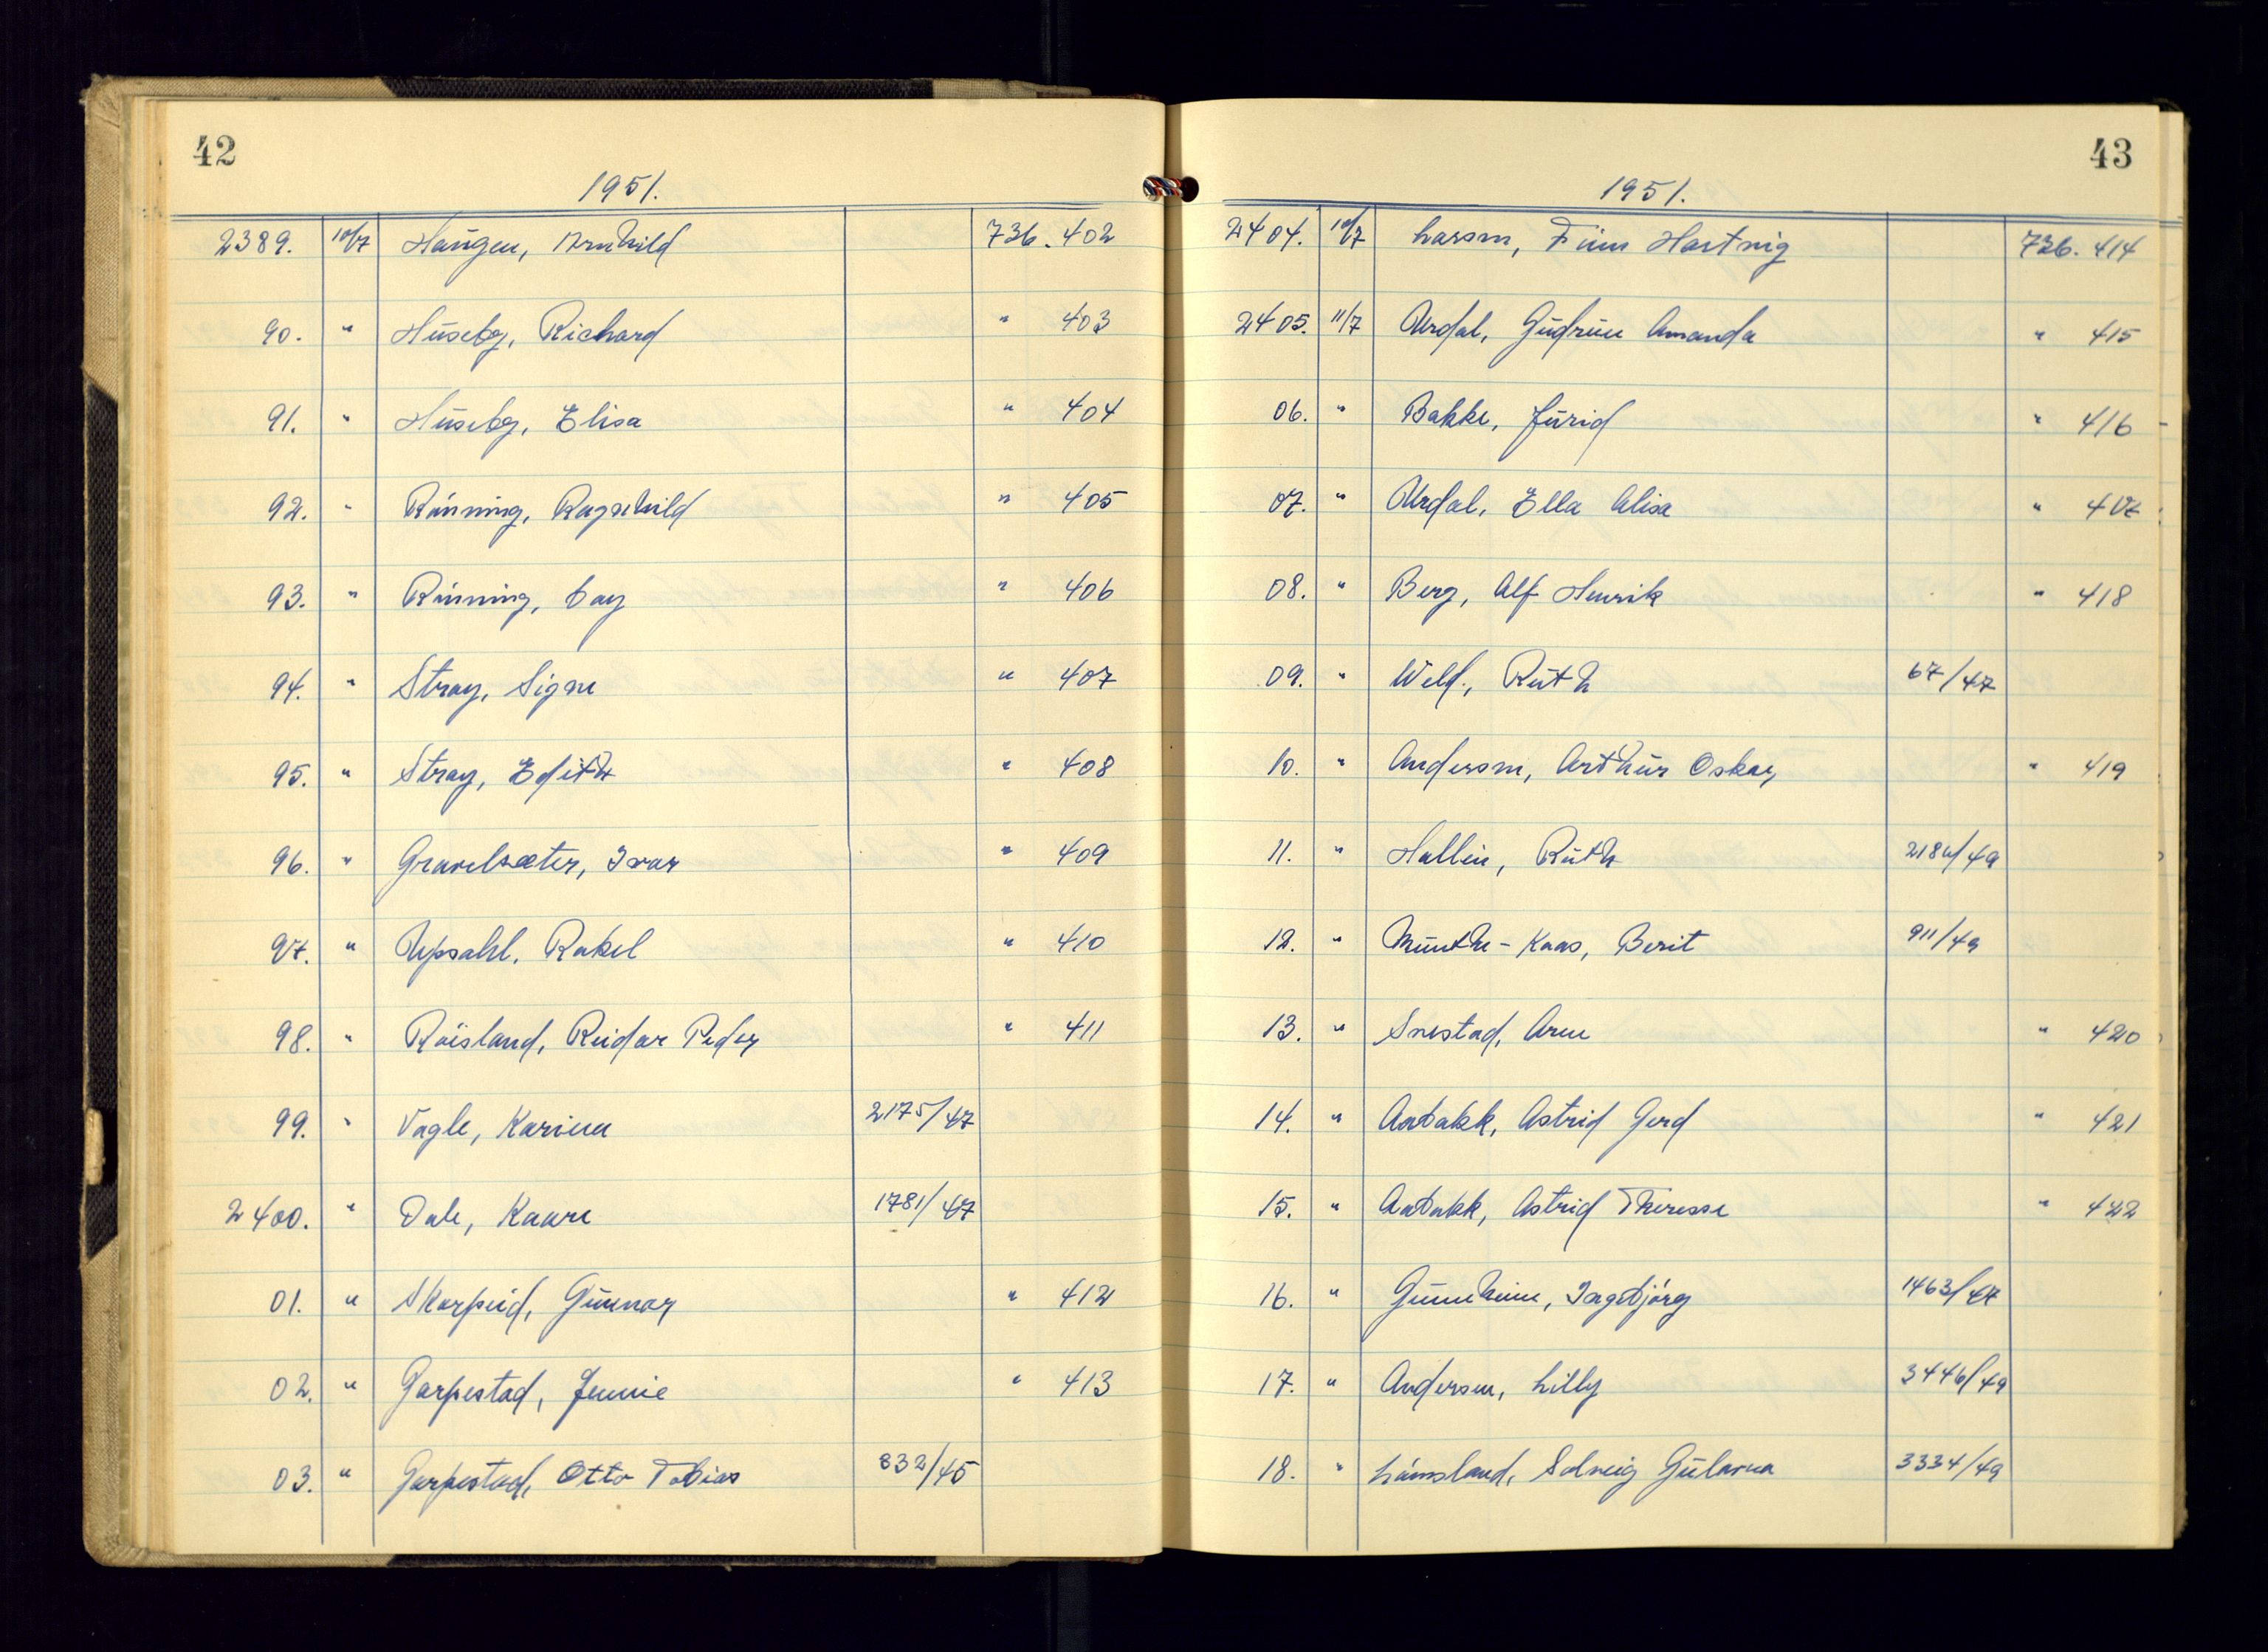 42
1951.
2389. 10/7 Haugen, Arnhild 736. 402
90. " Huseby, Richard " 403
91. " Huseby, Elisa " 404
92. " Rönning, Ragnhild " 405
93. " Rönning, Dag " 406
94. " Stray, Signe " 407
95. " Stray, Edith " 408
96. " Gravelsæter, Ivar " 409
97. " Upsahl, Rakel " 410
98. " Röisland, Reidar Peder " 411
99. " Vagle, Karina 2175/47
2400. " Dale, Kaare 1781/47
01. " Skarpeid, Gunnar " 412
02. " Garpestad, Jennie " 413
03. " Garpestad, Otto Tobias 832/45
43
1951.
2404. 10/7 Larsen, Finn Hartvig 736. 414
2405. 11/7 Urdal, Gudrun Amanda " 415
06. " Bakke, Jurid " 416
07. " Urdal, Ella Alisa " 417
08. " Berg, Alf Henrik " 418
09. " Weld, Ruth 67/47
10. " Andersen, Arthur Oskar " 419
11. " Hallin, Ruth /49
12. " Munthe-Kaas, Berit 911/49
13. " Snestad, Arne " 420
14. " Aabakk, Astrid Gerd " 421
15. " Aabakk, Astrid Theresse " 422
16. " Gunnheim, Ingebjörg 1463/47
17. " Andersen, Lilly 3446/49
18. " Lömsland, Solveig Gularna 3334/49